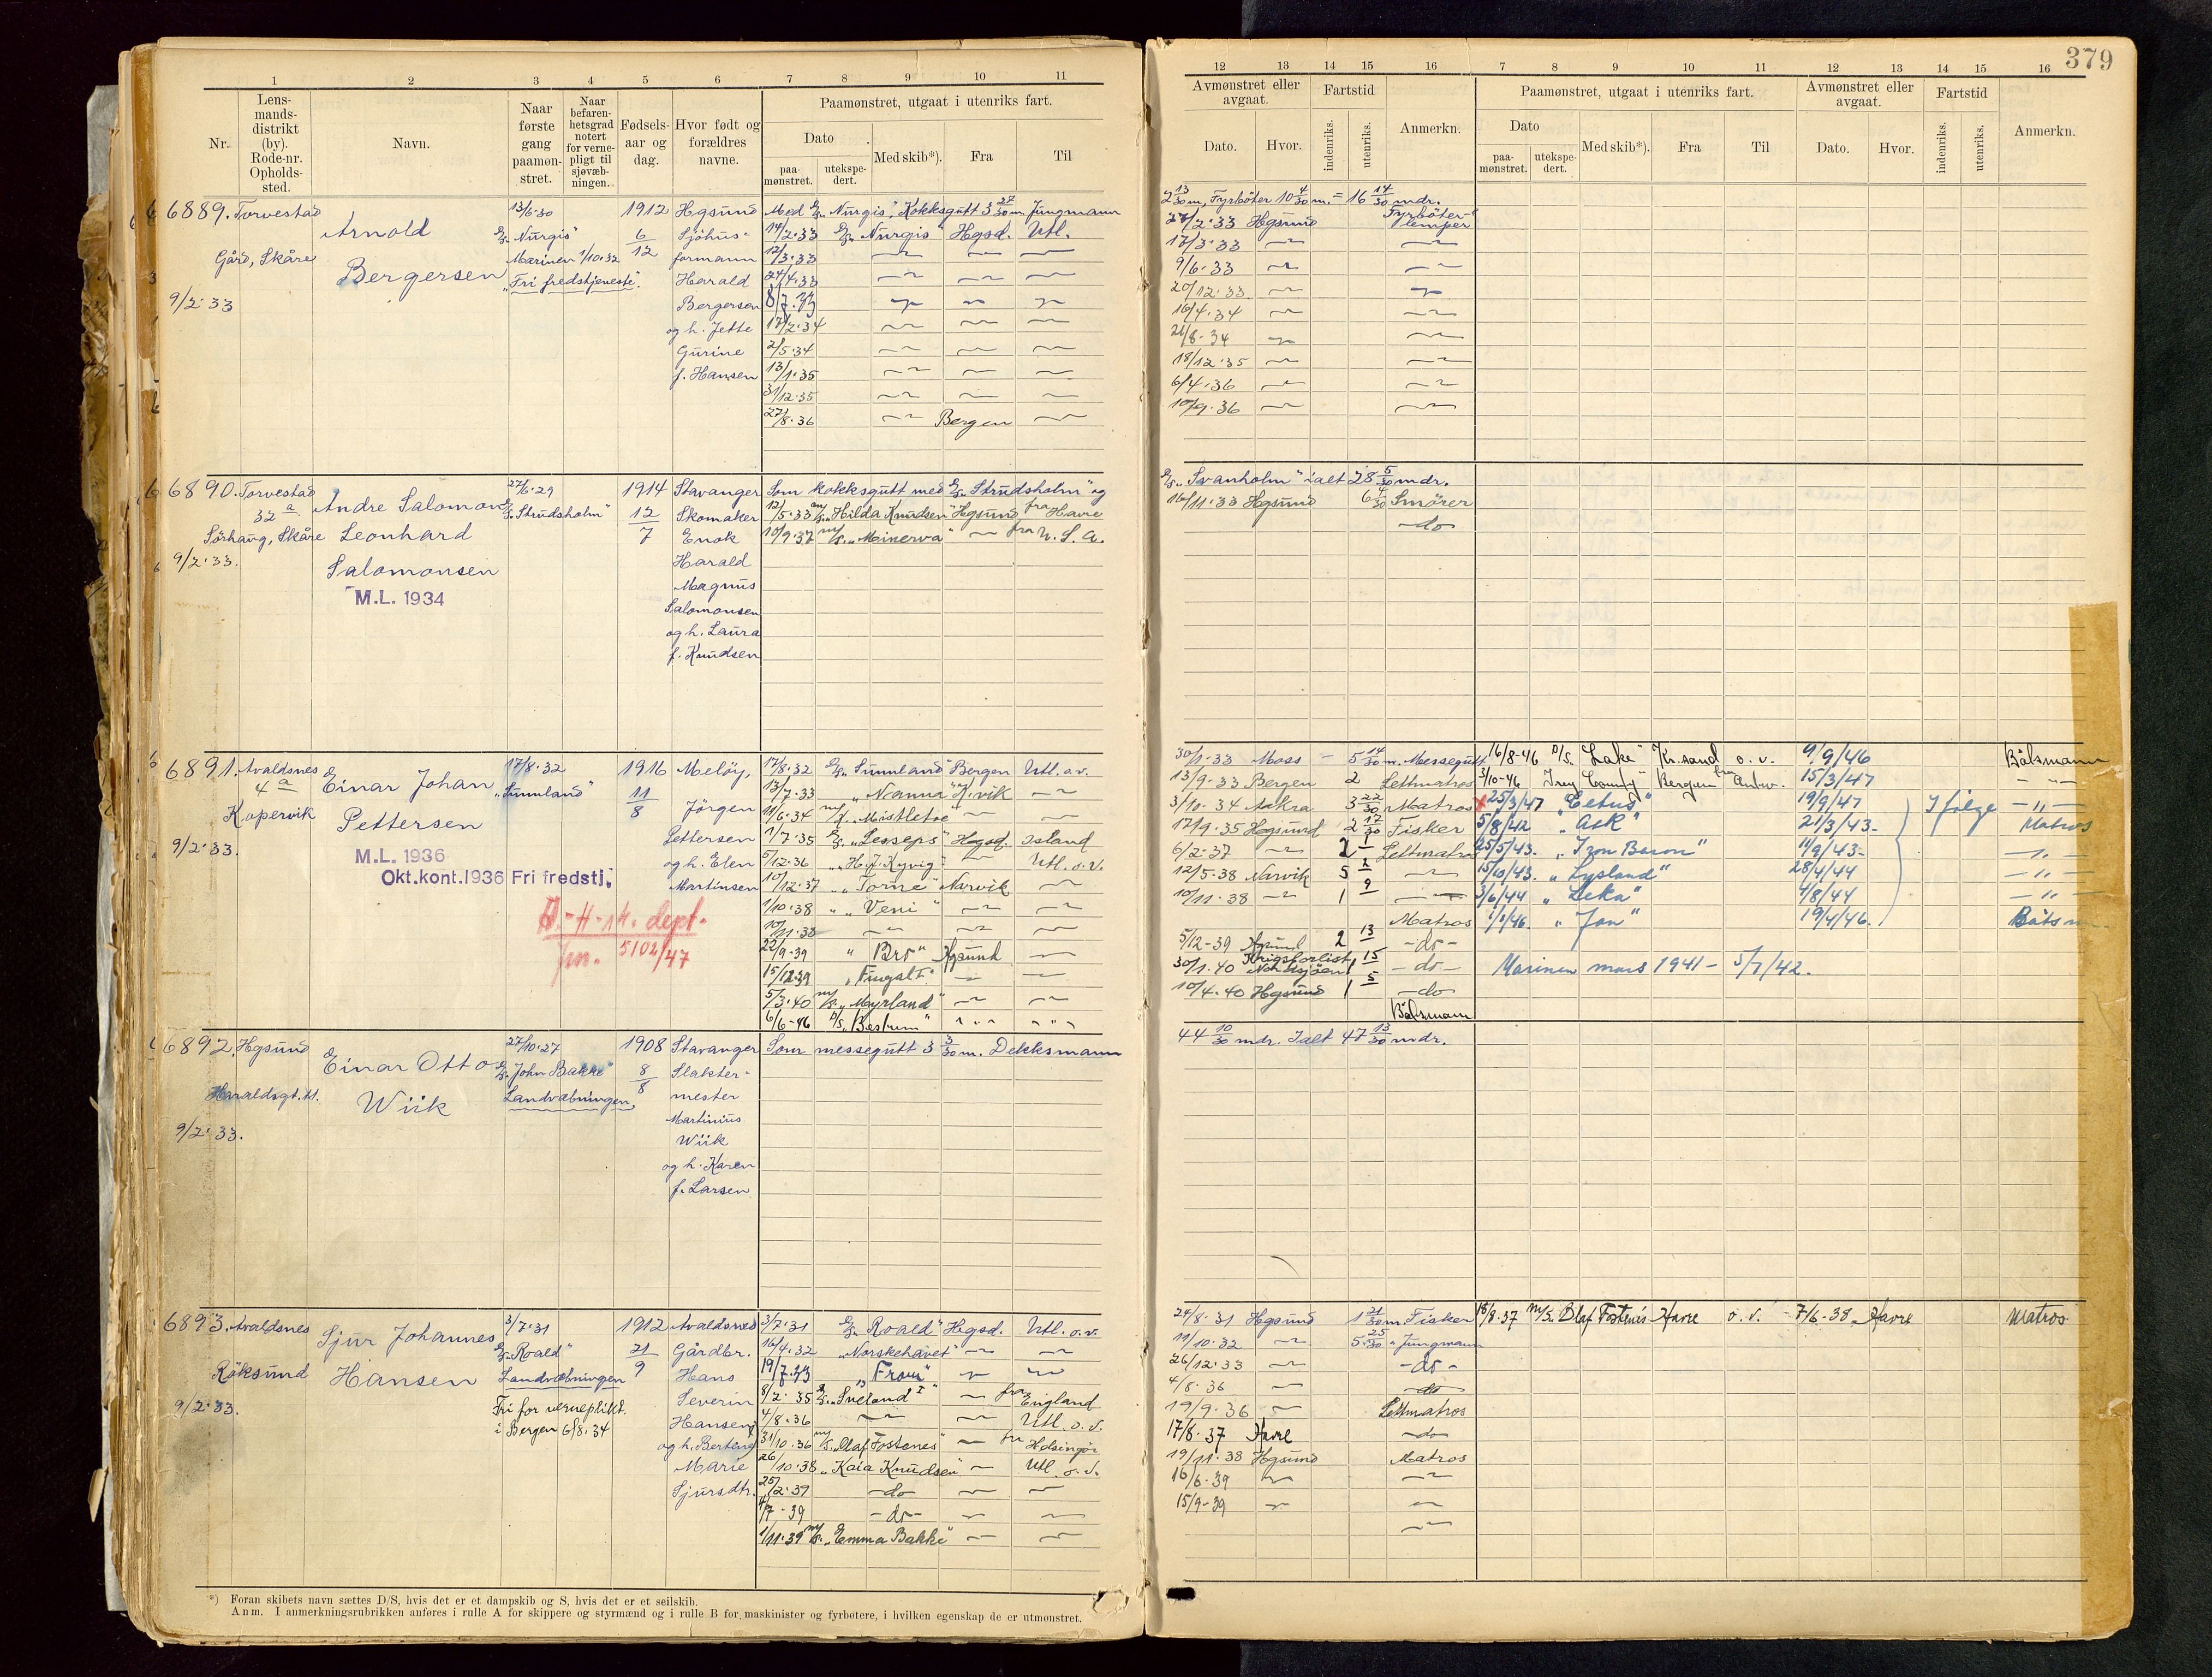 379
1 2 3 4 5 6 7 8 9 10 11
Nr.
Lens-
mands-
distrikt
(by).
Rode-nr.
Opholds-
sted.
Navn.
Naar
første
gang
paamøn-
stret.
Naar
befaren-
hetsgrad
notert
for verne-
pligt til
sjøvæb-
ningen.
Fødsels-
aar og
dag.
Hvor født og
forældres
navne.
Paamønstret, utgaat i utenriks fart.
Dato
paa-
mønstret.
utekspe-
dert.
Med skib*).
Fra
Til
12 13 14 15 16 7 8 9 10 11 12 13 14 15 16
Avmønstret eller
avgaat.
Dato.
Hvor.
Fartstid
indenriks.
utenriks.
Anmerkn.
Paamønstret, utgaat i utenriks fart.
Dato
paa-
mønstret.
utekspe-
dert.
Med skib*).
Fra
Til
Avmønstret eller
avgaat.
Dato.
Hvor.
Fartstid
indenriks.
utenriks.
Anmerkn.
6889. Torvestad
Gård, Skåre
9/2·33
Arnold
Bergersen
13/6·30
D/S. „Nurgis"
Marinen 1/10·32
„Fri fredstjeneste".
1912
6
12
Hgsund
Sjöhus-
formann
Harald
Bergersen
og h. Jette
Gurine
f. Hansen
Med D/S. „Nurgis", Kokksgutt 3 27/30 m Jungmann
14/2·33 D/S. „Nurgis" Hgsd. Utl.
17/3·33
24/4·33
8/7·33
17/2·34
2/5·34
13/1·35
31/12·35
27/8·36 Bergen
2 13/30 m, Fyrböter 10 4/30 m. = 16 14/30 mdr.
27/2·33 Hgsund Fyrböter-
lemper
17/3·33
9/6·33
20/12·33
16/4·34
21/8·34
18/12·35
6/4·36
10/9·36
6890. Torvestad
32 a
Sörhaug, Skåre
9/2·33.
Andre Salomon
Leonhard
Salomonsen
M.L. 1934
27/6·29
D/S. Strudsholm"
1914
12
7
Stavanger
Skomaker
Enok
Harald
Magnus
Salomonsen
og h. Laura
f. Knudsen
Som kokksgutt med D/S. „Strudsholm" og
12/5·33 m/S. „Hilda Knudsen" Hgsund fra Havre
10/9·37 m/S. „Minerva" fra U. S. A.
D/S. „Svanholm" ialt 28 5/30 mdr.
16/11·33 Hgsund 6 4/30 Smörer
–do–
6891. Avaldsnes
4 a
Kopervik
9/2·33.
Einar Johan
Pettersen
M.L. 1936
Okt.kont.1936 Fri fredstj.
H-14. dept.
jnr. 5102/47
17/8·32
„Sunnland"
1916
11
8
Melöy,
Jörgen
Pettersen
og h. Elen
Martinsen
17/8·32 D/S. „Sunnland" Bergen Utl. o.v.
13/7·33 „Nanna" K.vik
11/6·34 „Mistletoe"
1/7·35 D/S. „Lesseps" Hgsd. Island
5/12·36 „H. J. Kyvig" Utl. o.v.
10/12·37 „Torne" Narvik
1/10·38 „ „Veni"
10/11·38
22/9·39 „ Bro" Hgsund
15/12·39 „Fingal I"
5/3·40 m/S. „Myrland"
6/6-46 D/S. „Bestum"
30/1·33 Moss – 5 14/30 m. Messegutt
13/9·33 Bergen 2 Lettmatros
3/10·34 Aakra 3 22/30 Matros
17/9·35 Hgsund 2 17/30 Fisker
6/2·37 2 Lettmatros
12/5·38 Narvik 5
10/11·38 1 9
Matros
5/12-39 Hgsund 2 13 –do–
30/1·40 Krigsforlist
Nordsjöen 1 15 –do–
10/4·40 Hgsund 1 5 –do–
Båtsmann
16/8-46 D/S. „Lake" Kr.sand o. v. 9/9/46 Båtsmann
3/10-46 Bergen Antw. 15/3/47
25/3/47 „Cetus" 19/9/47 I følge – „ –
5/8/42 „Ask" 21/3/43– Matros
25/5/43– „Iron Baron" 11/9/43– – „ –
15/10/43. „Lysland" 28/4/44 – „ –
3/6/44 „Leka" 4/8/44 – „
„Jan" 19/4/46.
Marinen mars 1941 – 5/7/42.
6892. Hgsund
Haraldsgt.
9/2·33.
Einar Otto
Wiik
27/10·27
D/S. „John Bakke"
Landvæbningen.
1908
8
8
Stavanger
Slakter-
mester
Martinius
Wiik
og h. Karen
f. Larsen
Som messegutt 3 3/30 m. Dekksmann
44 10/30 mdr. Ialt 47 13/30 mdr.
6893. Avaldsnes
Röksund
9/2·33.
Sjur Johannes
Hansen
3/7·31
D/S. „Roald"
Landvæbningen
Fri for verneplikt.
i Bergen 6/8·34
1912
21
9
Avaldsnes
Gårdbr.
Hans
Severin
Hansen
og h. Berteng
Marie
Sjursdtr.
3/7·31 D/S. „Roald" Hgsd. Utl. o.v.
16/4·32 „Norskehavet"
19/7·33 „From"
8/2·35 D/S. „Sveland I" fra England
4/8·36 Utl. o.v.
31/10·36 m/S. „Olaf Fostenes" fra Helsingör
26/10·38 „Kaia Knudsen" Utl. o.v.
25/2·39 –do–
4/7-39 –do–
1/11·39 m/S. „Emma Bakke"
24/8·31 Hgsund 1 21/30 m. Fisker
11/10·32 5 25/30 „ Jungmann
26/12·33 –do–
4/8·36 –do–
19/9·36 Lettmatros
17/8·37 Havre –do–
19/11·38 Hgsund Matros
16/6·39
15/9-39
18/8·37 M/S. Olaf Fostenes Havre o. v. 7/6-38 Havre Matros
*) Foran skibets navn sættes D/S, hvis det er et dampskib og S, hvis det er et seilskib.
Anm. I anmerkningsrubrikken anføres i rulle A for skippere og styrmænd og i rulle B for maskinister og fyrbøtere, i hvilken egenskap de er utmønstret.